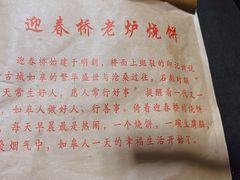 迎春桥老炉烧饼
迎春桥始建于明朝，桥面上斑驳的印记诉说
古城如皋的繁华盛世与沧桑过往。石刻对联"
天常生好人，愿人常行好事"提醒着一代又一
，如皋人做好人、行善事。倚着迎春桥的烧饼
，每天早晨最是热闹，一个烧饼，一碗豆腐脑，
烟气中，如皋人一天的幸福生活开始了。